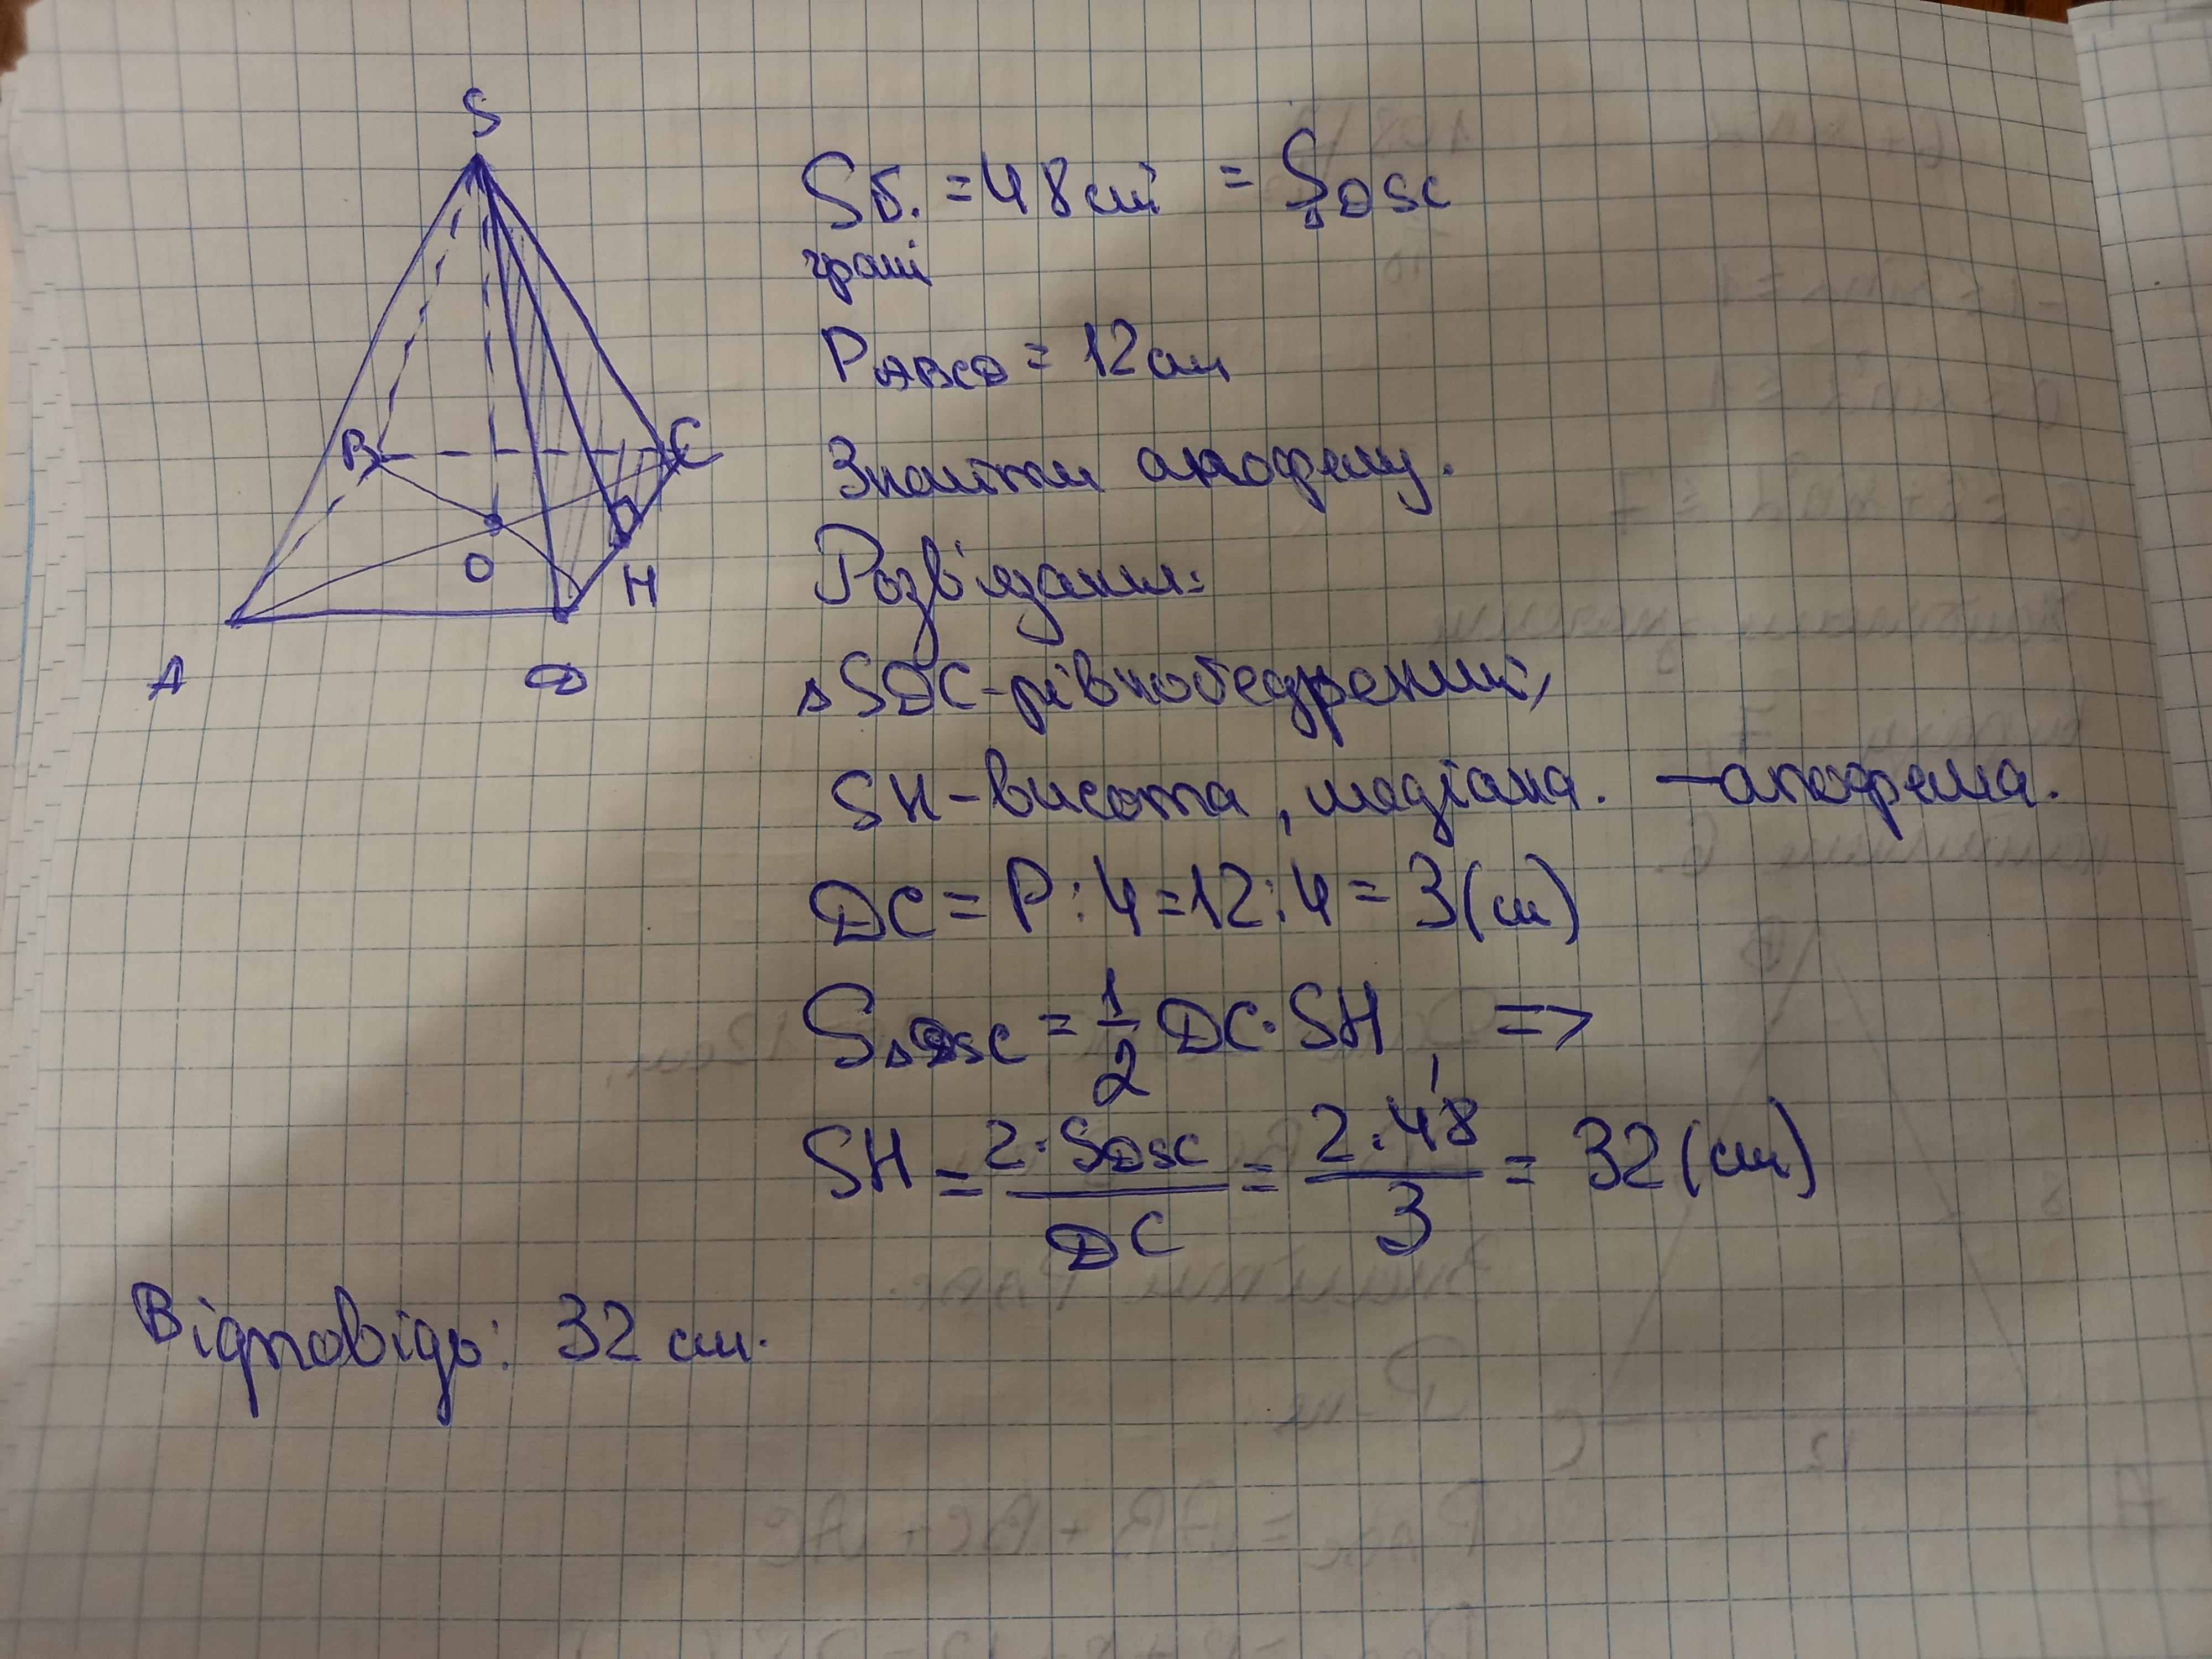 S
Sб. = 48 см² = S△DSC
грані
PABCD = 12 см
B
C
Знайти апофему.
O
H
Розв'язання:
A
D
△SDC - рівнобедрений,
SH - висота, медіана. — апофема.
DC = P : 4 = 12 : 4 = 3 (см)
S△DSC = 1/2 DC · SH, =>
SH = 2 · SDSC / DC = 2 · 48 / 3 = 32 (см)
Відповідь: 32 см.